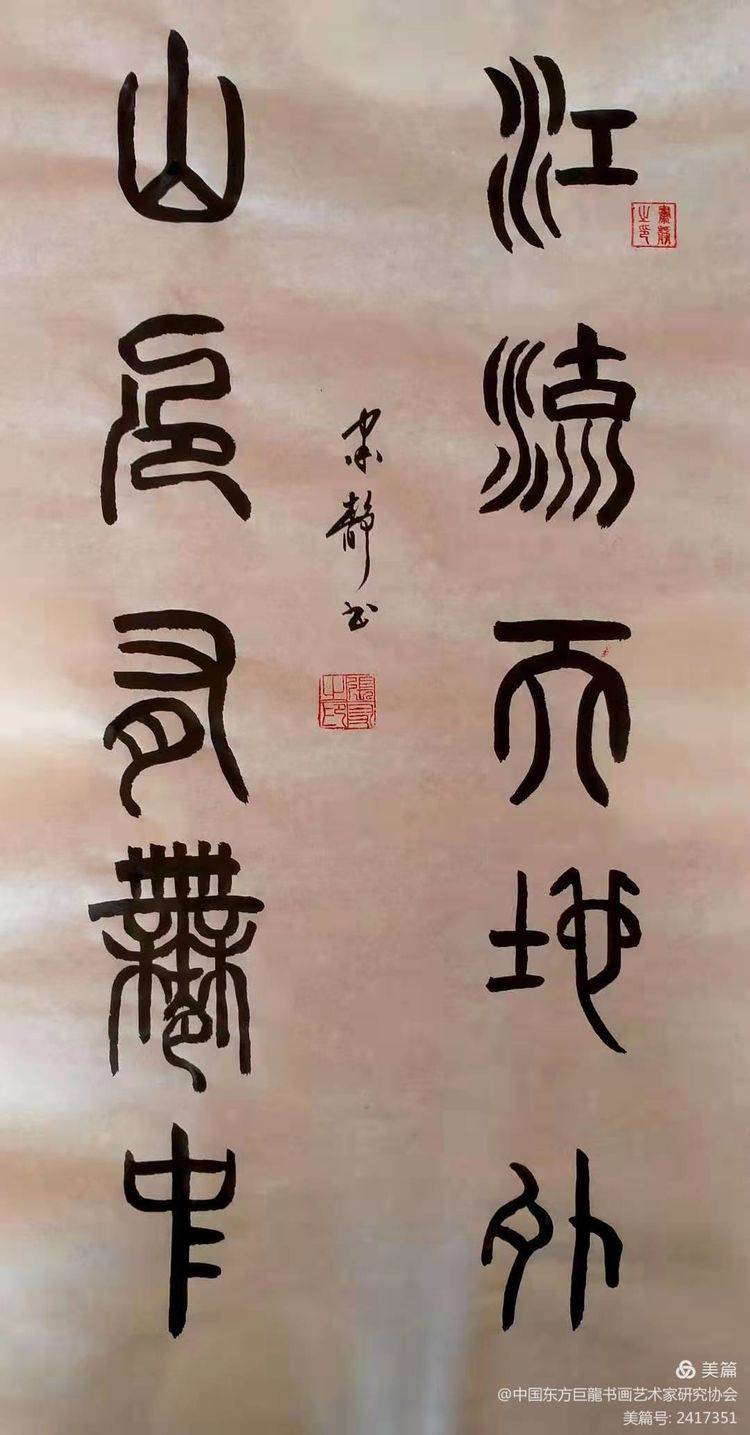 江流天地外
山色有無中
靜书
美篇
@中国东方巨龍书画艺术家研究协会
美篇号: 2417351